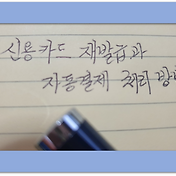 신용카드 재발급과
자동결제 처리 방